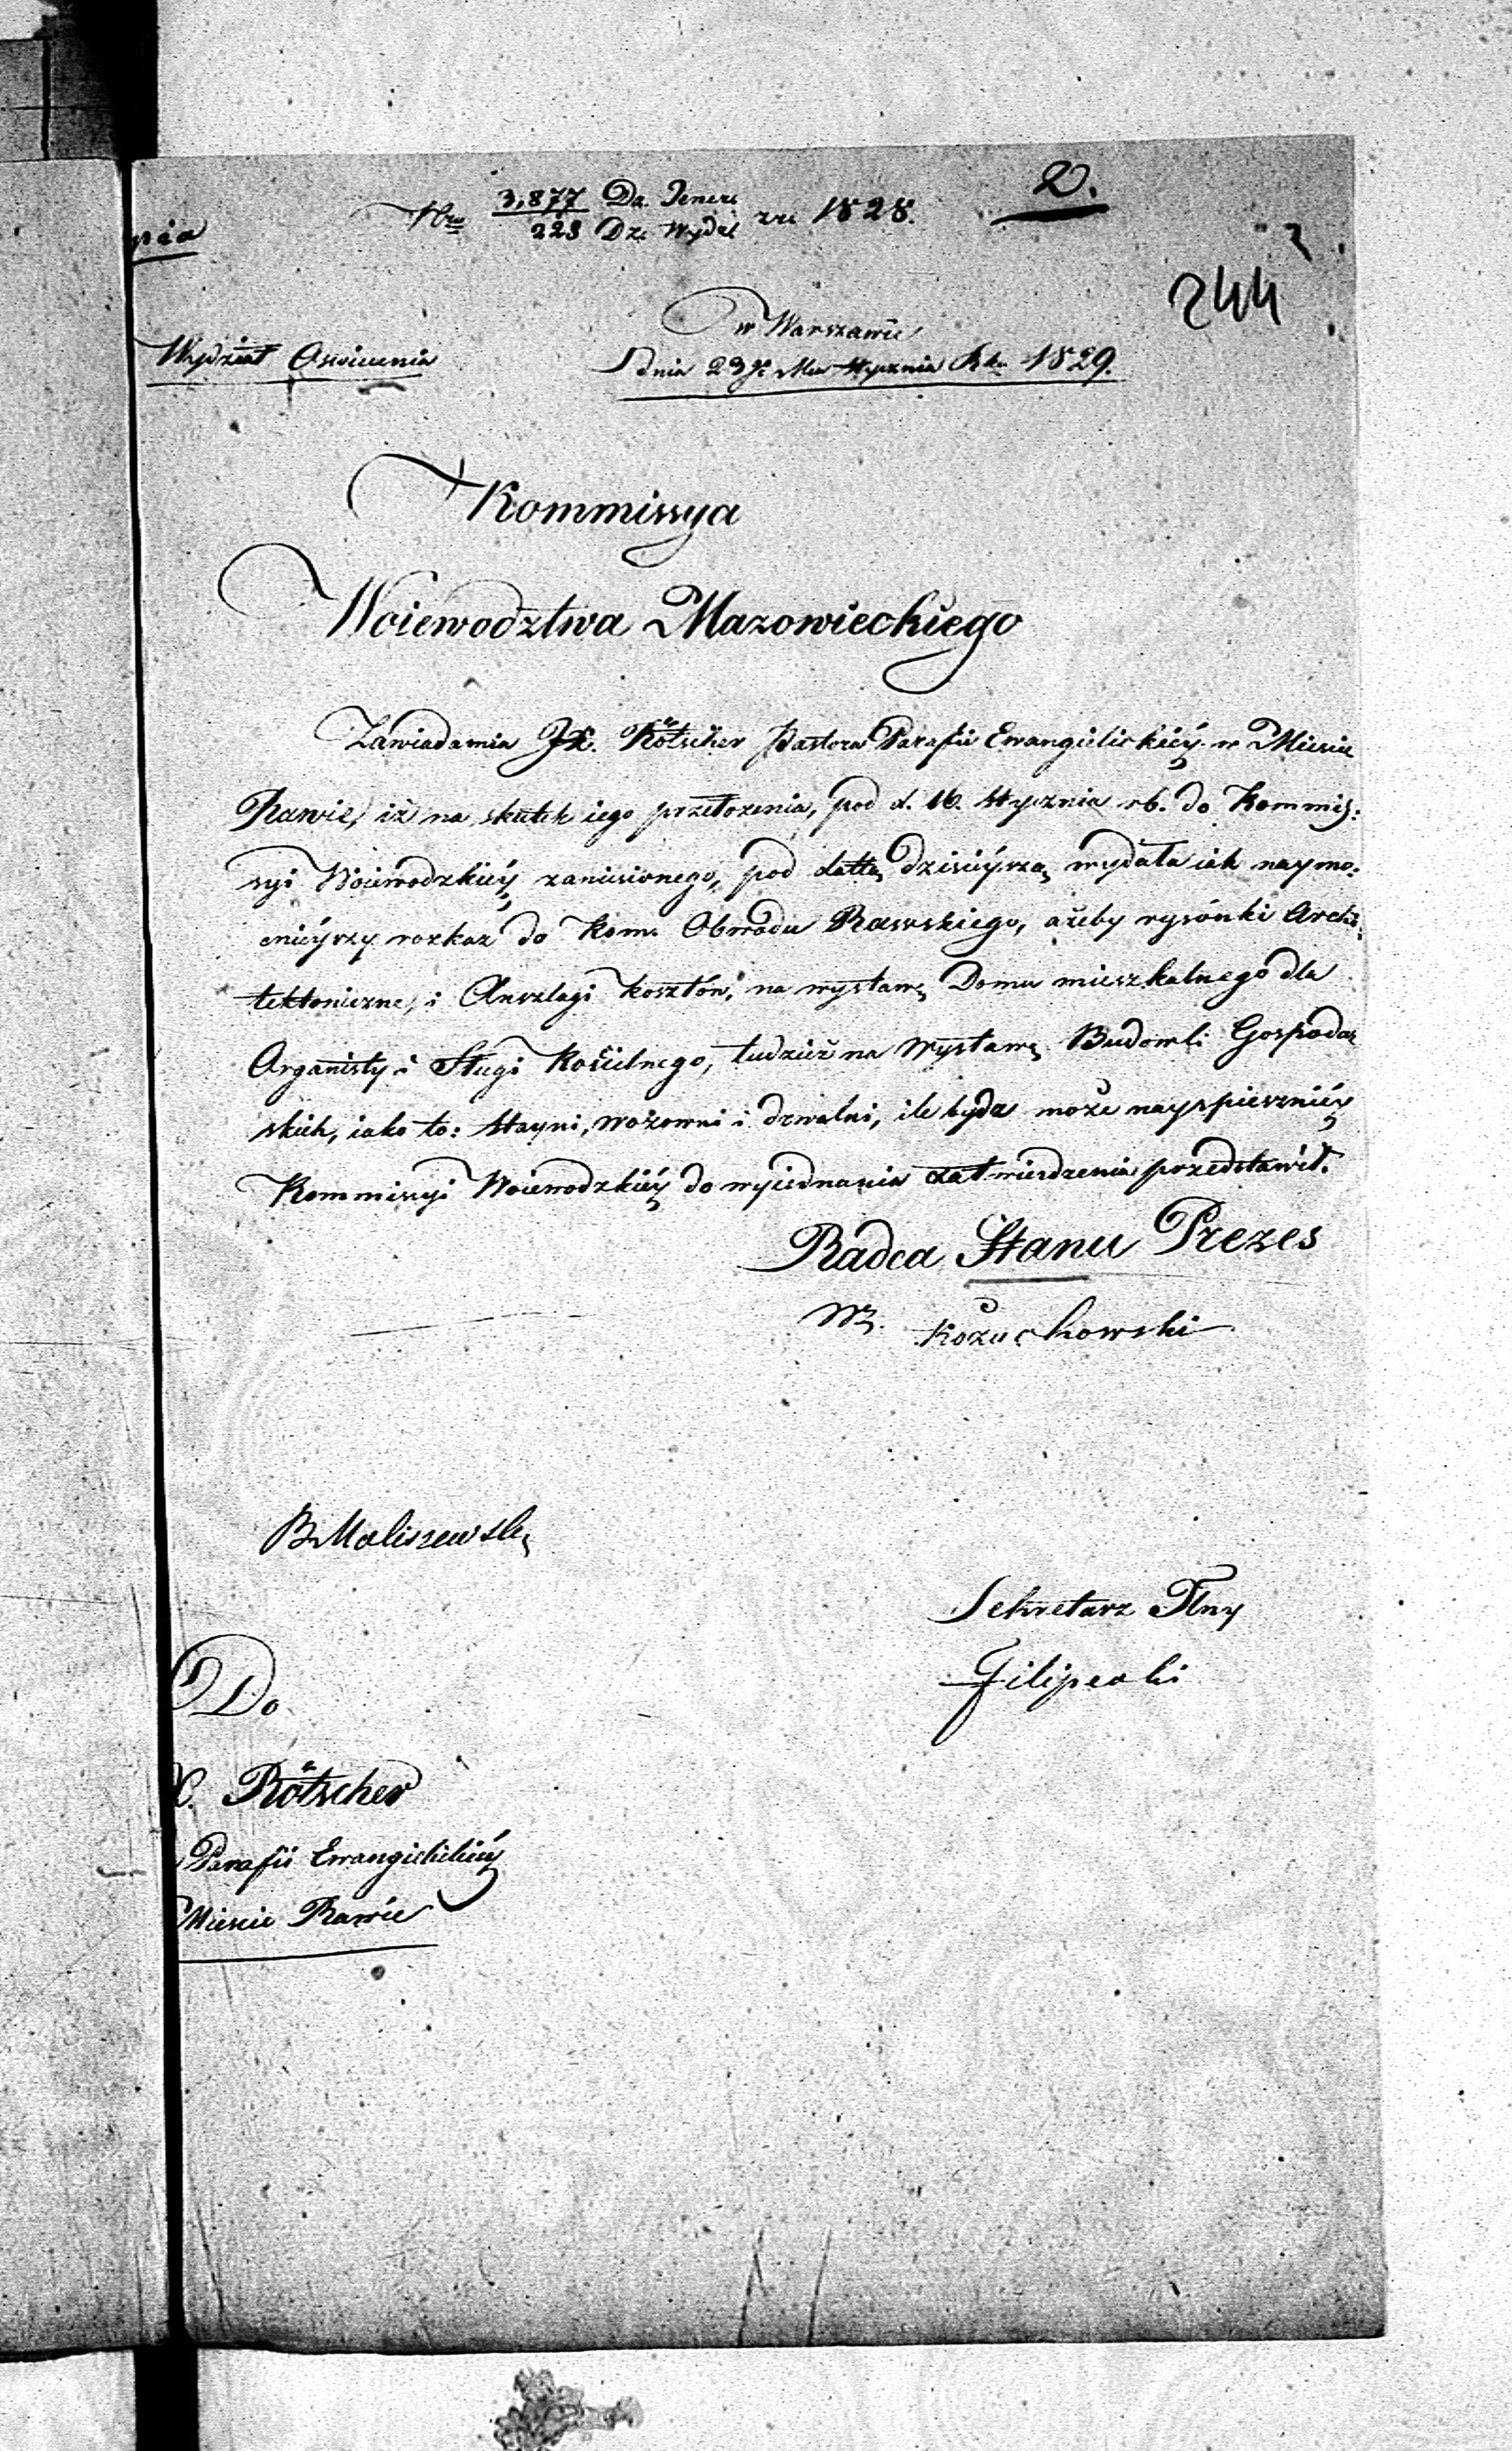 pia
Nro 3,877 Da. Jener
223 Dz. Wydz za 1828.
2.
244
w Warszawie
Wydział Oświecenia
dnia 23 go Mca Stycznia Rku 1829.
Kommissya
Woiewodztwa Mazowieckiego
Zawiadamia JX. Rötscher Pastora Parafii Ewangielickiéy w Mieście
Rawie, iż na skutek iego przełożenia, pod d. 16. Stycznia rb. do Kommis:
syi Woiewodzkiéy zaniesionego, pod dattą dzisiéyszą wydała iak naymo:
cniéyszy rozkaz do Kom: Obwodu Rawskiego, ażeby rysónki Archi:
tektoniczne, i Anszlagi kosztów, na wystawę Domu mieszkalnego dla
Organisty i Sługi Kościelnego, tudzież na wystawę Budowli Gospodar
skich, iako to: Stayni, wozowni i drwalni, ile bydz może nayspieszniéy
Kommissyi Woiewodzkiéy do wyiednania zatwierdzenia przedstawił.
Radca Stanu Prezes
wz. Kożuchowski
B. Maliszewski
Sekretarz Jlny
Filipecki
Do
X. Rötscher
Parafii Ewangielickiéy
Mieście Rawie